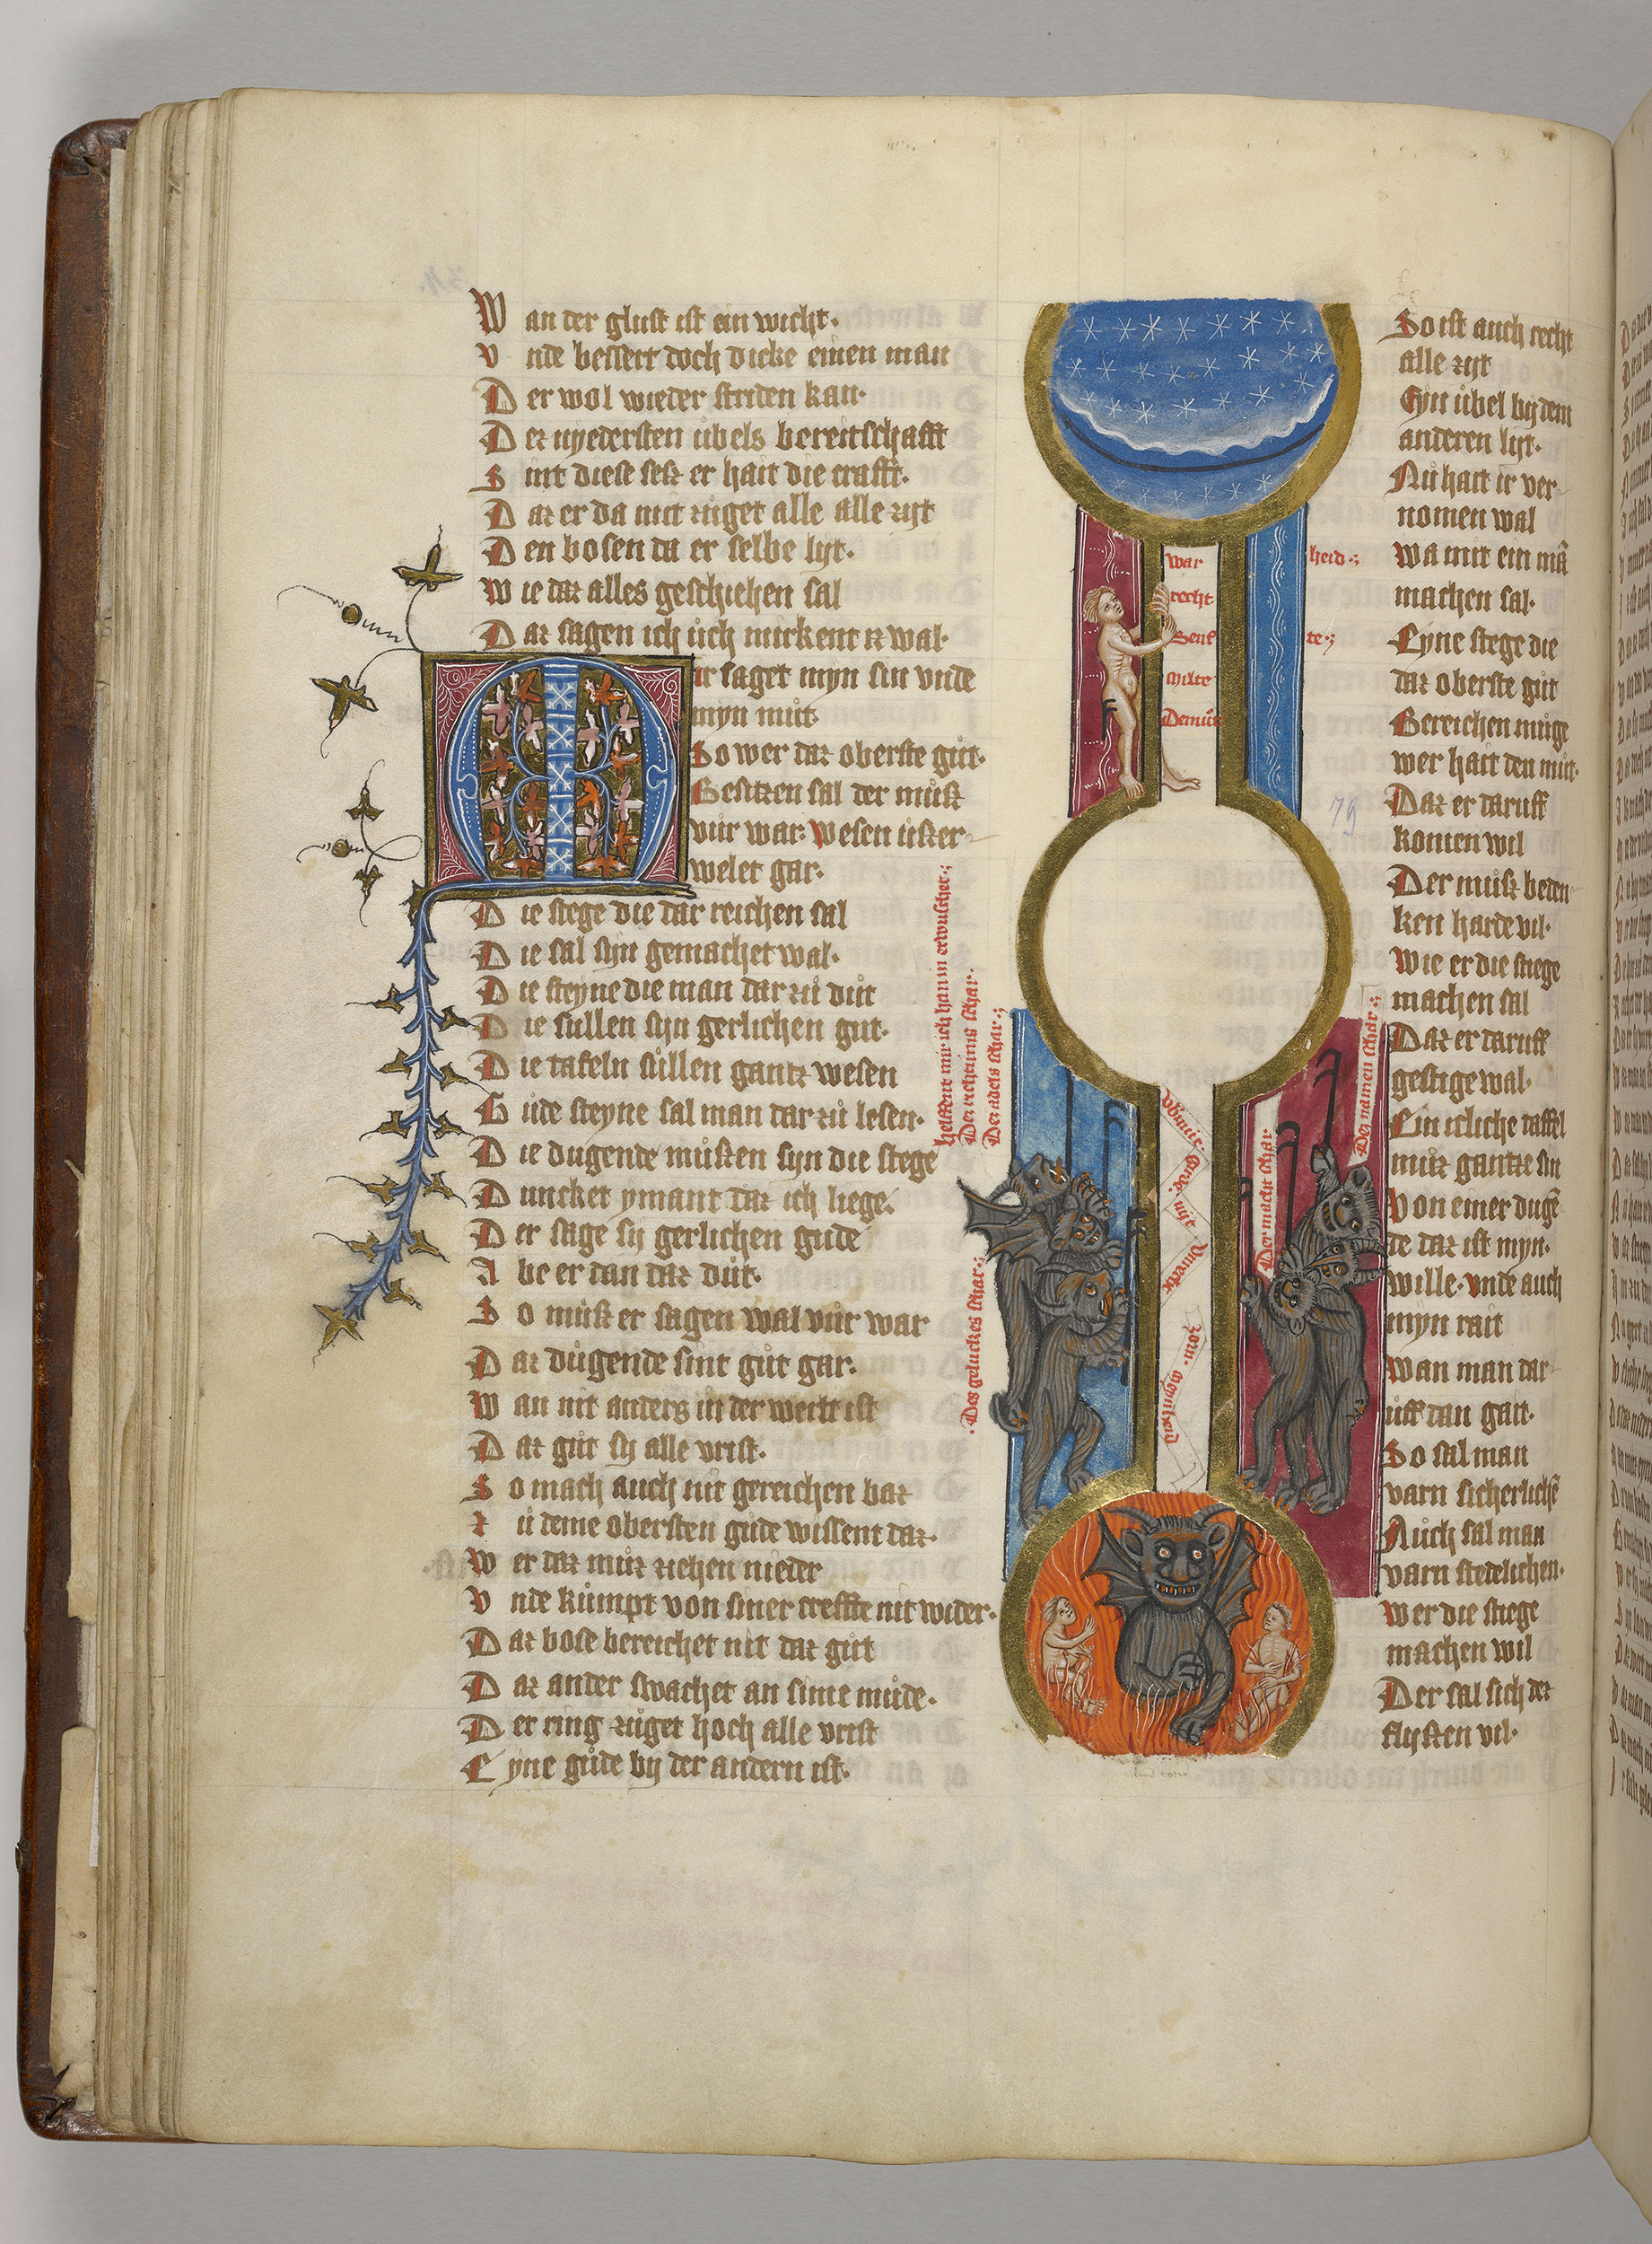 Wan der glust ist ein wicht·
Vnde bessert doch dicke einen man
Der wol wieder striden kan·
Der nyedersten úbels bereitschafft
Sint diese sesz er hait die crafft·
Daz er da mit zúget alle alle zyt
Den bosen da er selbe lyt·
Wie daz alles geschiehen sal
Daz sagen ich úch mirkent iz wal·
Mir saget myn sin vnde
myn mút·
So wer daz oberste gút·
Besitzen sal der músz
vúr war wesen úszer
welet gar·
Die stege die dar reichen sal
Die sal syn gemachet wal·
Die steyne die man dar zú dút
Die sullen syn gerlichen gut·
Die tafeln súllen gantz wesen
Gúde steyne sal man dar zú lesen·
Die dugende múszen syn die stege
Duncket ymant daz ich liege·
Der sage sy gerlichen gude
Abe er dan daz dút·
So músz er sagen wal vúr war
Daz dúgende sint gút gar·
Wan nit anders in der werlt ist
Daz gút sy alle vrist·
So mach auch nit gereichen baz
Zú deme obersten gúde wissent daz·
Wer daz múz ziehen nieder
Vnde kúmpt von siner creffte nit wider·
Daz bose bereichet nit daz gút
Daz ander swachet an sime múde·
Der ring zúget hoch alle vrist
Eyne gúde by der andern ist·
war heid
recht
Senf te
milte
Demút
helffent mir ich han in erwuschet
Der richtums schar·
Der adels schar
Des geluckes schar
Der macht schar
Der namen schar
vbmút
nyt
vnrecht
zorn
So ist auch recht
alle zyt
Eyn úbel by dem
anderen lyt·
Nú hait ir ver
nomen wal
wa mit ein mā
machen sal·
Eyne stege die
daz oberste gút
Bereichen múge
wer hait den mút·
Daz er daruff
komen wil
Der músz beden
ken harde vil·
Wie er die stiege
machen sal
Daz er daruff
gestige wal·
Ein itliche taffel
múz gantze sin
Von einer dugē
de daz ist myn·
wille· vnde auch
myn rait
Wan man dar
úff dan gait·
So sal man
varn sicherlichē
Auch sal man
varn stedelichen·
Wer die stiege
machen wil
Der sal sich der
flyszen vil·
79